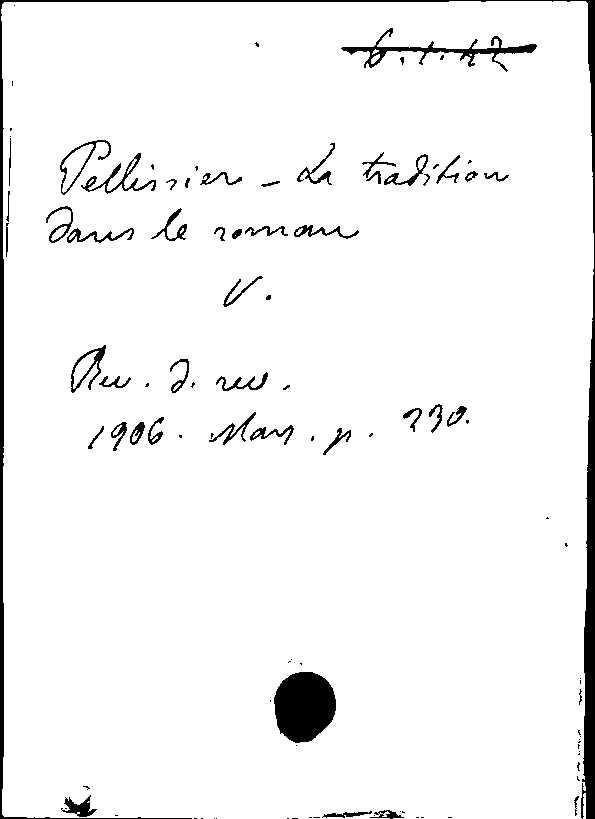 6.1.42
Pellissier - La tradition
dans le roman
V.
Rev. d. rev.
1906. Mars. p. 230.